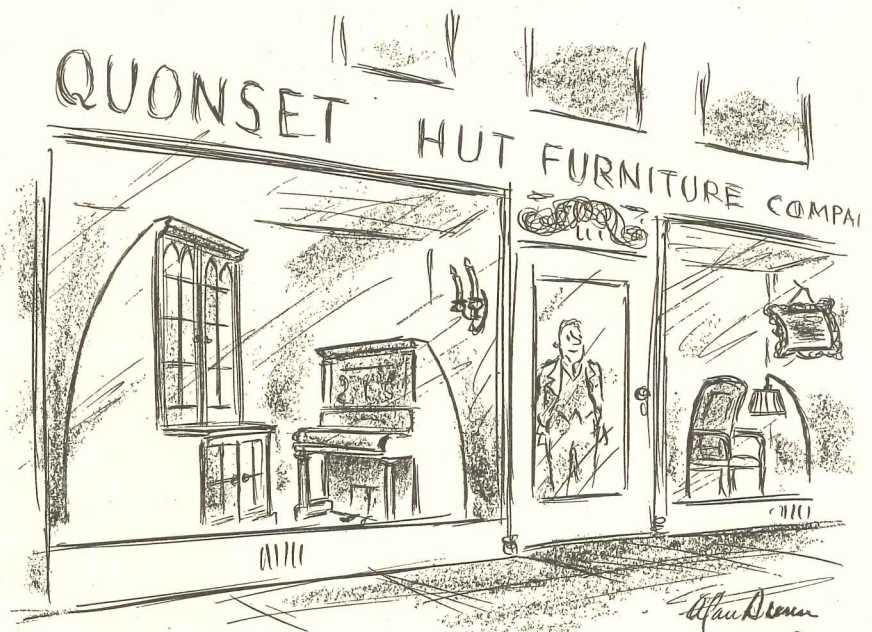 QUONSET HUT FURNITURE COMPA
Alan Dunn